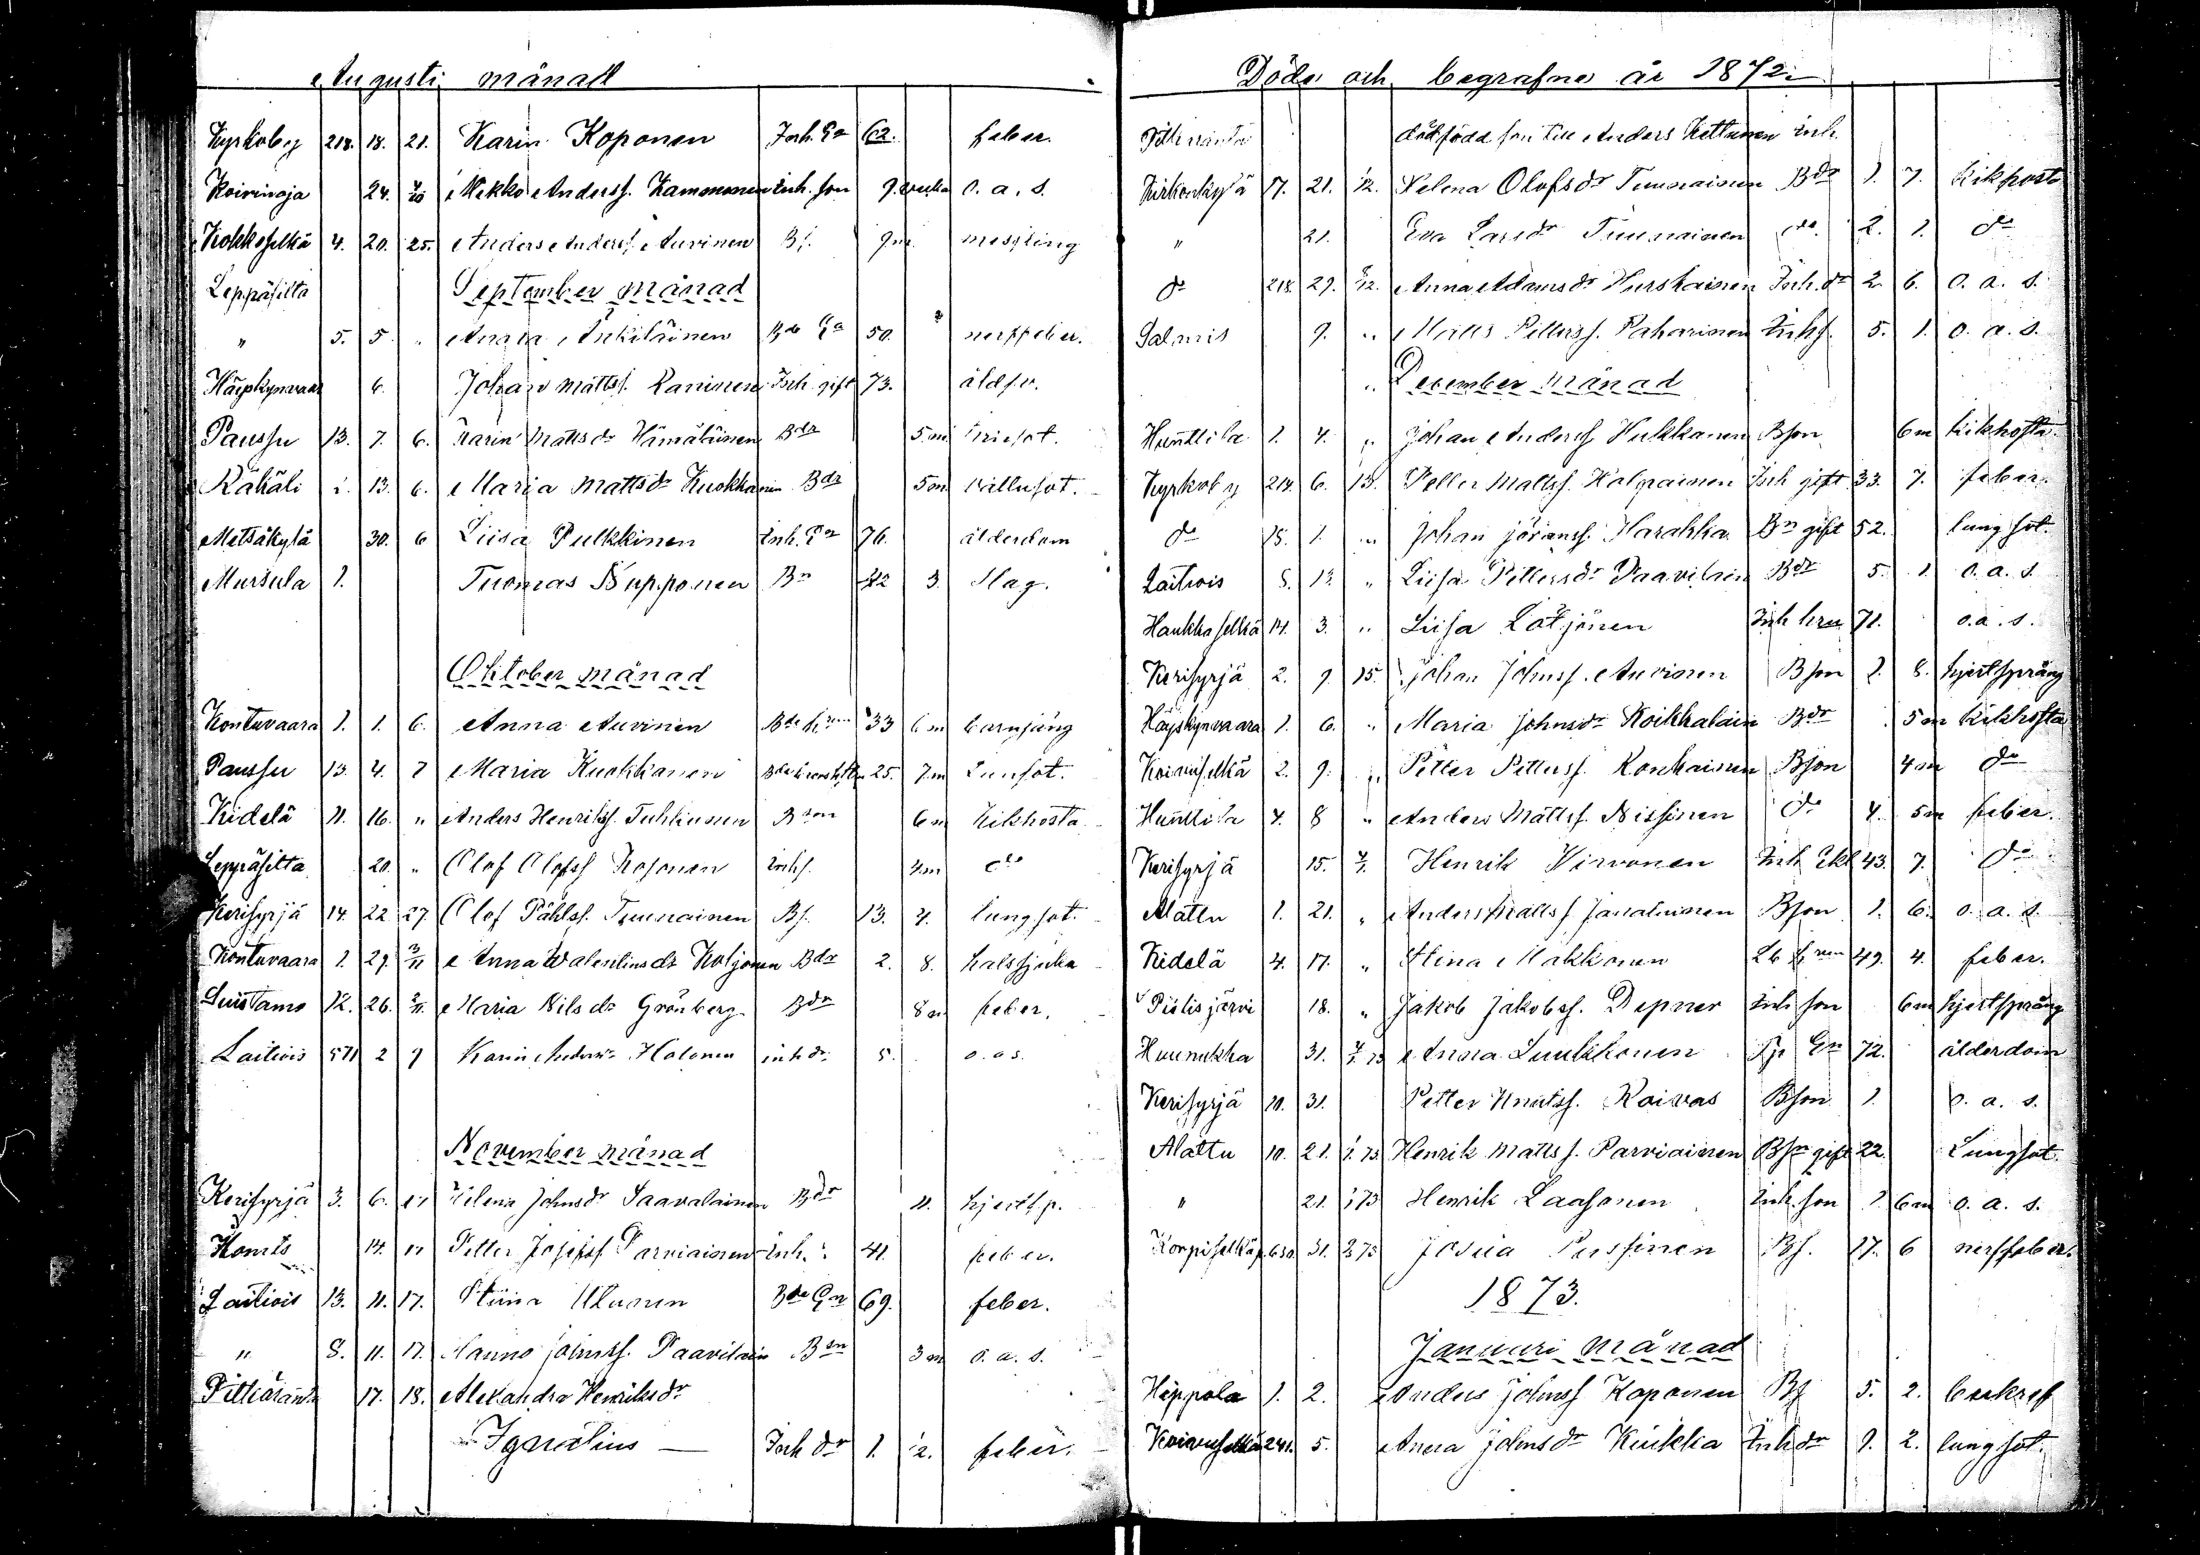 Augusti månad
Kyrkoby 218. 18. 21. Karin Koponen Inh. Ea 62. feber.
Koirinoja 24. Mikko Anderss. Kammonen Inh. son 9. veckor o. a. s.
Kokkoselkä 4. 20. 25. Anders Anderss. Auvinen Bs. 9m messling
Leppäsilta September månad
" 5. 5 " Anna Ea 50. nerffeber.
Häyskynvaara 6. Johan Mattss. Inh. gift 73.
Paussu 13. 7. 6. Karin Mattsdr Hämäläinen Bdr 5m
Kähäli 13. 6. Maria Mattsdr Kuokkanen Bdr 5m
Metsäkylä 30. 6 Liisa Pulkkinen Inh. Ea 76. ålderdom
Mursula 1. Tuomas Nupponen Bn 3. slag.
Oktober månad
Kontuvaara 1. 1. 6. Anna Auvinen 33 6m barnsäng
Paussu 13. 4. 7 Maria Kuokkanen 25. 7m Lunsot.
Kidelä 11. 16. " Anders Henrikss. Tuhkunen Bson 6m Kikhosta
Leppäsilta 20. " Olof Olofss Kosonen inhs. 4m do
Kerisyrjä 14. 22 27 Olof Påhlss. Tuunainen Bs. 13. 4. lungsot.
Kontuvaara 1. 29. 3/11 Anna Walentinsdr Koljonen Bdr 2. 8. halssjuka
Suistamo 12. 26. 3/11. Maria Nilsdr Grönberg Bdr 8m feber.
Laitiois 571 2 9 Karin Andersdr Holonen inh dr. 5. o. a s.
November månad
Kerisyrjä 3. 6. Helena Johnsdr Saavalainen Bdr 11. hjertsp.
14. Petter Josefss Parviainen inh. 41. feber.
Laitiois 13. 11. 17. Stiina Bde Ea 69. feber.
" 8. 11. 17. Hannes Johnss. Paavilain Bsn 3m o. a. s.
Pitkäranta 17. 18. Alexandra Henriksdr
Ignatius — Inh dr 1. feber.
Döde och begrafne år 1872.
Pitkäranta dödfödd son till Anders Kettunen inh.
Kirkonkylä 17. 21. 1/12. Helena Olofsdr Tuunainen Bdr 1. 7. Kikhost
" 21. Eva Larsdr Tuunainen do. 2. 1. do
do 218. 29. Anna Adamsdr Hurskainen Inh. dr 2. 6. o. a. s.
Salmis 9. " Matts Petterss. Paharinen Inhs. 5. 1. o. a. s.
" December månad
Hunttila 1. 4. " Johan Anderss Hukkanen Bson 6m kikhosta.
Kyrkoby 214. 6. 13. Petter Mattss. Inh gift 33. 7. feber.
do 15. 1. " Johan Jöranss. Harakka Bn gift 52. lungsot.
Laitiois 8. 13. " Liisa Pettersdr Paavilain Bdr 5. 1. o. a. s.
Haukkaselkä 14. 3. " Liisa Lötjönen Inh hru 71. o. a. s.
Kerisyrjä 2. 9. 15. Johan Johnss. Auvinen Bson 2. 8. hjertsprång
Häyskynvaara 1. 6. " Maria Johnsdr Koikkalain Bdr 5m kikhosta
Koiranselkä 2. 9. " Petter Petterss. Ronkainen Bson 4m do
Hunttila 4. 8 " Anders Mattss. Nissinen do 4. 5m feber.
Kerisyrjä 15. Henrik Hirvonen Inh Ekl 43. 7. do
Alattu 1. 21. " Anders Mattss Janatuinen Bson 1. 6. o. a. s.
Kidelä 4. 17. " Stina Makkonen 49. 4. feber.
Pistisjärvi 18. " Jakob Jakobss. Depner Inh son 6m hjertsprång
Huunukka 31. Anna Luukkonen Ea 72. ålderdom
Kerisyrjä 10. 31. Petter Knutss. Raivas Bson 1. o. a. s.
Alattu 10. 21. 73 Henrik Mattss. Parviainen Bsn gift 22. Lungsot
" 21. 73 Henrik Laasonen Inh. son 1. 6m o. a. s.
Korpiselkä p. 630. 31. 73 Josua Pussinen Bs. 17. 6 nerffeber.
1873.
Januari månad
Heppola 1. 2. Anders Johnss Koponen Bs 5. 2.
Koiranselkä 241. 5. Anna Johnsdr Kiukka Inh dr 9. 2. lungsot.